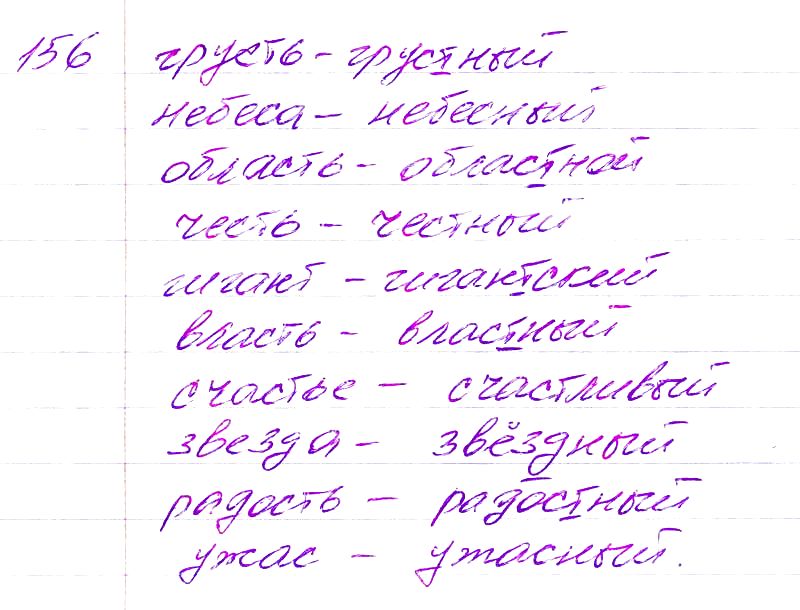 156 грусть - грустный
небеса - небесный
область - областной
честь - честный
гигант - гигантский
власть - властный
счастье - счастливый
звезда - звёздный
радость - радостный
ужас - ужасный.